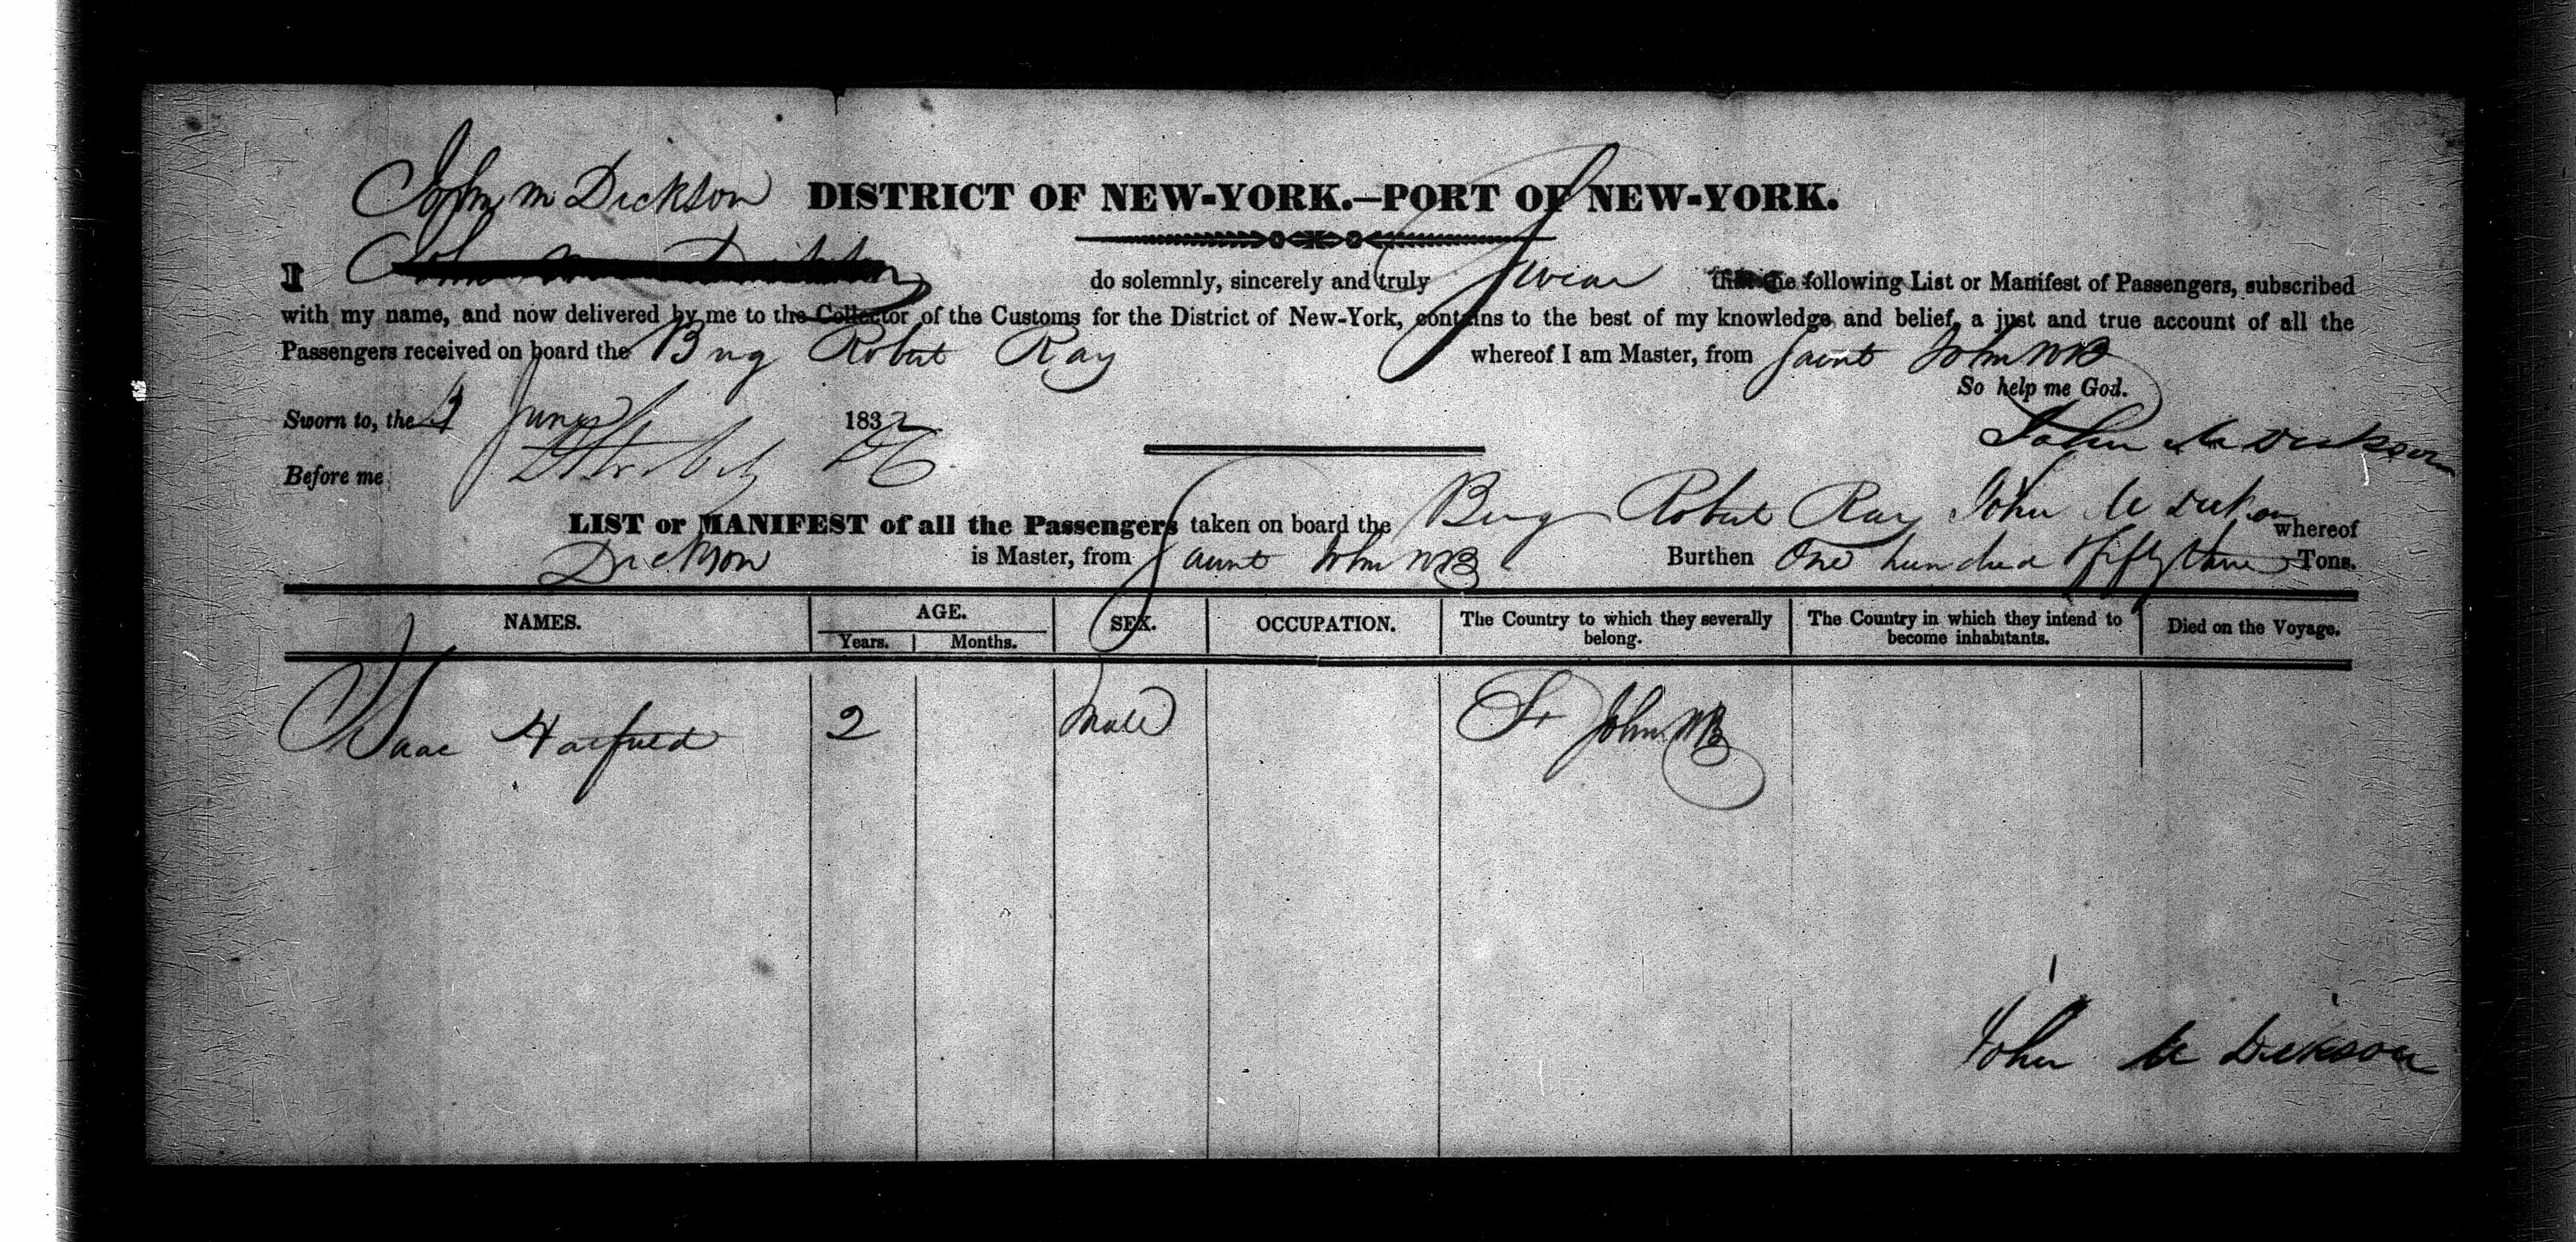 John M Dickson DISTRICT OF NEW-YORK.—PORT OF NEW-YORK.
I do solemnly, sincerely and truly Swear that the following List or Manifest of Passengers, subscribed
with my name, and now delivered by me to the Collector of the Customs for the District of New-York, contains to the best of my knowledge and belief, a just and true account of all the
Passengers received on board the Brig Robert Ray whereof I am Master, from Saint John NB
So help me God.
Sworn to, the June 1832
John M Dickson
Before me
LIST or MANIFEST of all the Passengers taken on board the Brig Robert Ray John M Dickson whereof
Dickson is Master, from Saint John NB Burthen One hundred & fifty three Tons.
NAMES. AGE. SEX. OCCUPATION. The Country to which they severally belong. The Country in which they intend to become inhabitants. Died on the Voyage.
Years. Months.
Isaac 2 Male St John NB
John M Dickson